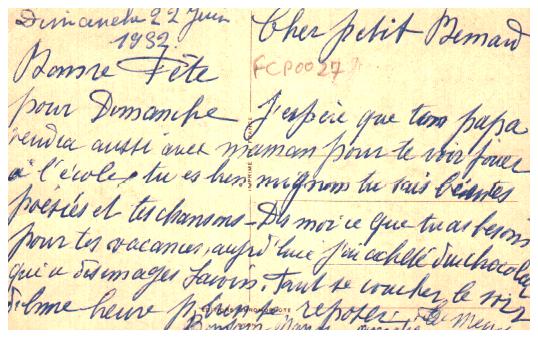 Dimanche 22 Juin
1932
Bonne Fête
pour Dimanche
Cher petit Bernard
FCP0027
J'espère que ton papa
viendra aussi avec maman pour te voir jouer
a l'école, tu es bien mignon tu sais
poésies et tes chansons - Dis moi ce que tu as besoin
pour tes vacances, aujourd'hui j'ai acheté du chocolat
qui a des images faut se coucher le soir
bonne heure pour te reposer